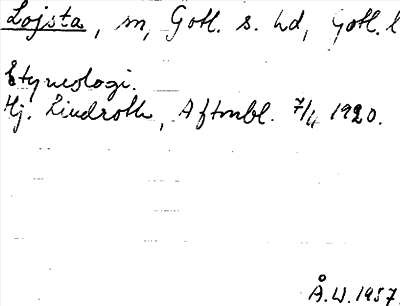 Lojsta, sn, Gotl. s. hd, Gotl. l
Etymologi.
Hj. Lindroth, Aftonbl. 7/4 1920.
Å.W. 1957